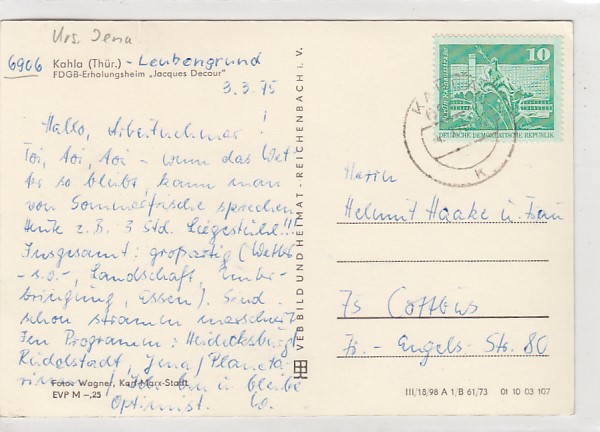 Krs. Jena
6906 Kahla (Thür.) - Leubengrund
FDGB-Erholungsheim „Jacques Decour"
3.3.75
Hallo, Arbeitnehmer!
Toi, toi, toi - wenn das Wet
ter so bleibt, kann man
von Sommerfrische sprechen
Heute z.B. 3 Std. Liegestühl!!!
Insgesamt: großartig (Wetter
- s.o.-, Landschaft, Unter-
bringung, Essen). Sind
schon stramm marschiert
Im Programm: Heidecksburg
Rudolstadt, Jena/Planeta-
rium
Foto: Wagner, Karl-Marx-Stadt
bleibe
EVP M -,25
Optimist.
VEB BILD UND HEIMAT · REICHENBACH i. V.
10
DEUTSCHE DEMOKRATISCHE REPUBLIK
Herrn
Helmut Haake u. Frau
75 Cottbus
Fr.-Engels-Str. 80
III/18/98 A 1/B 61/73 01 10 03 107